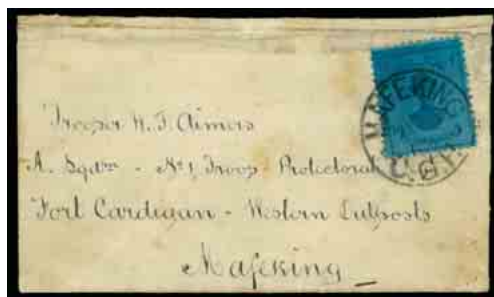 MAFEKING
Trooper W. F. Aimers
A. Sqdrn - No 1 Troop Protectorate
Fort Cardigan - Western Outposts
Mafeking